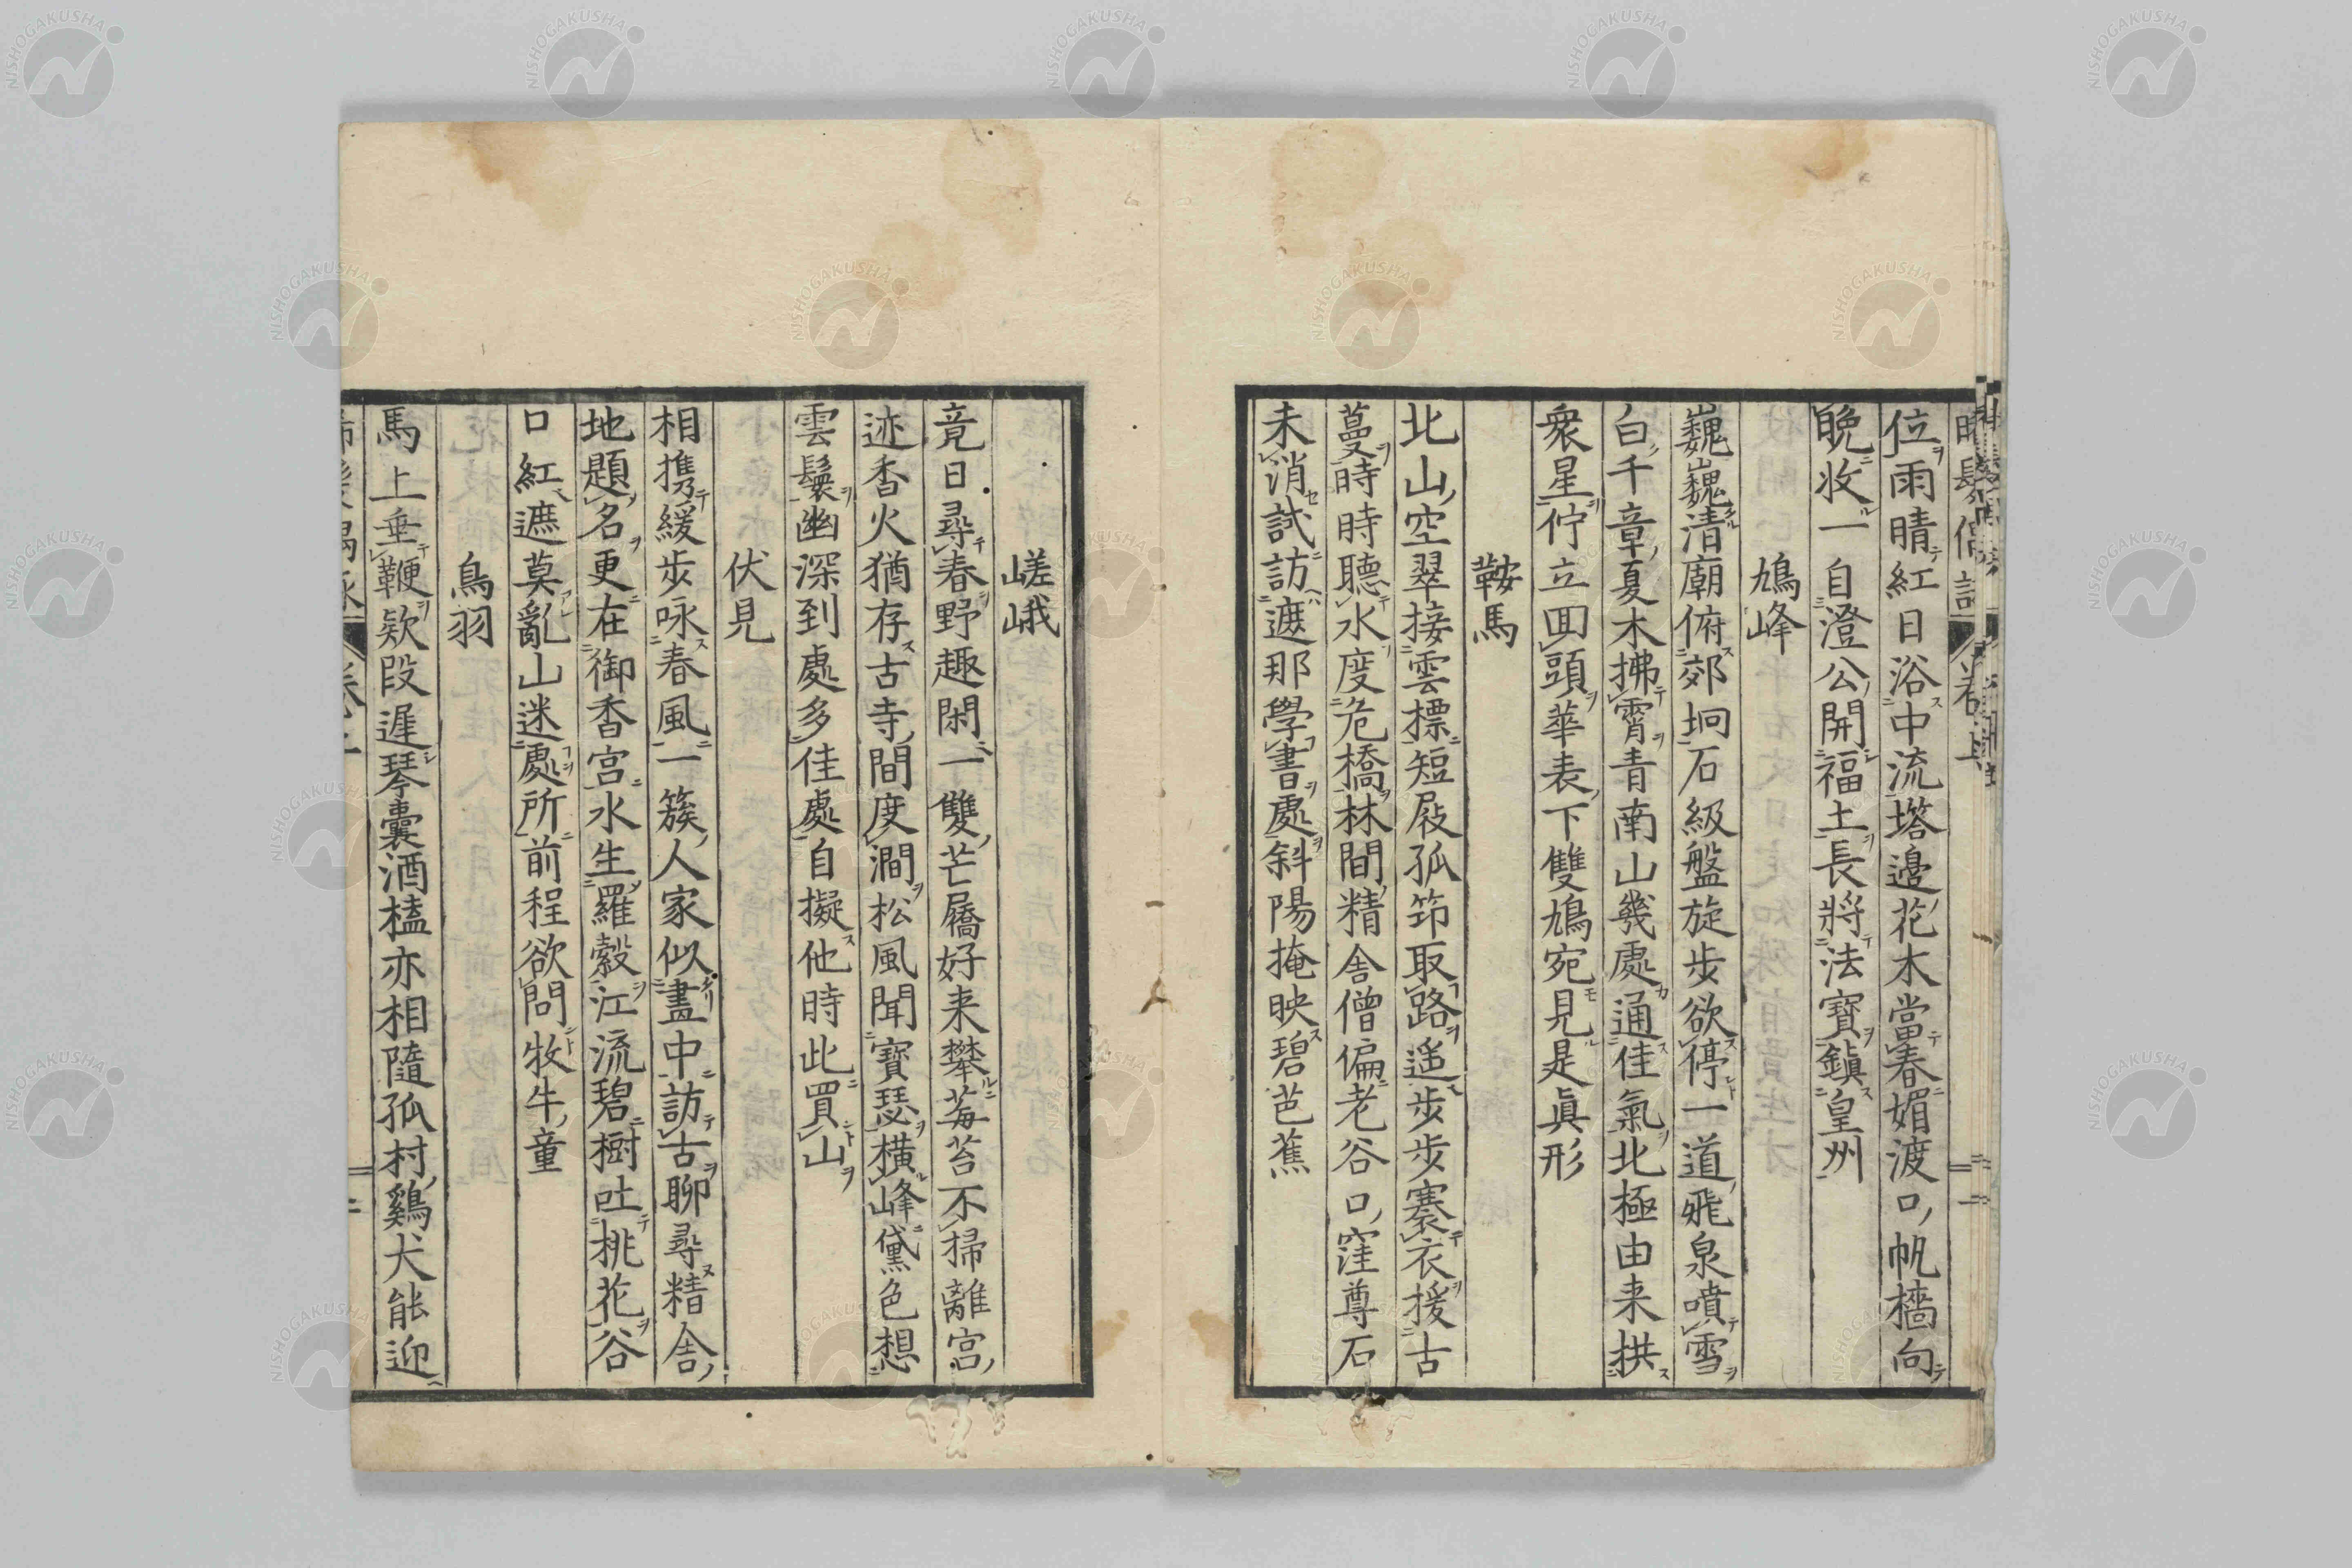 位雨晴紅日浴中流塔邊花木當春媚渡口帆檣向
晩收一自澄公開福土長將法寶鎭皇州
鳩峰
巍巍清廟俯郊坰石級盤旋步欲停一道飛泉噴雪
白千章夏木拂霄青南山幾處通佳氣北極由来拱
衆星佇立回頭華表下雙鳩宛見是眞形
鞍馬
北山空翠接雲標短屐孤筇取路遥步步褰衣援古
蔓時時聽水度危橋林間精舍僧偏老谷口窪尊石
未消試訪遮那學書處斜陽掩映碧芭蕉
嵯峨
竟日尋春野趣閑一雙芒屩好来攀莓苔不掃離宮
迹香火猶存古寺間度澗松風聞寶瑟橫峰黛色想
雲鬟幽深到處多佳處自擬他時此買山
伏見
相携緩步咏春風一簇人家似畫中訪古聊尋精舍
地題名更在御香宮水生羅縠江流碧樹吐桃花谷
口紅遮莫亂山迷處所前程欲問牧牛童
鳥羽
馬上垂鞭欵段遲琴囊酒榼亦相隨孤村鷄犬能迎